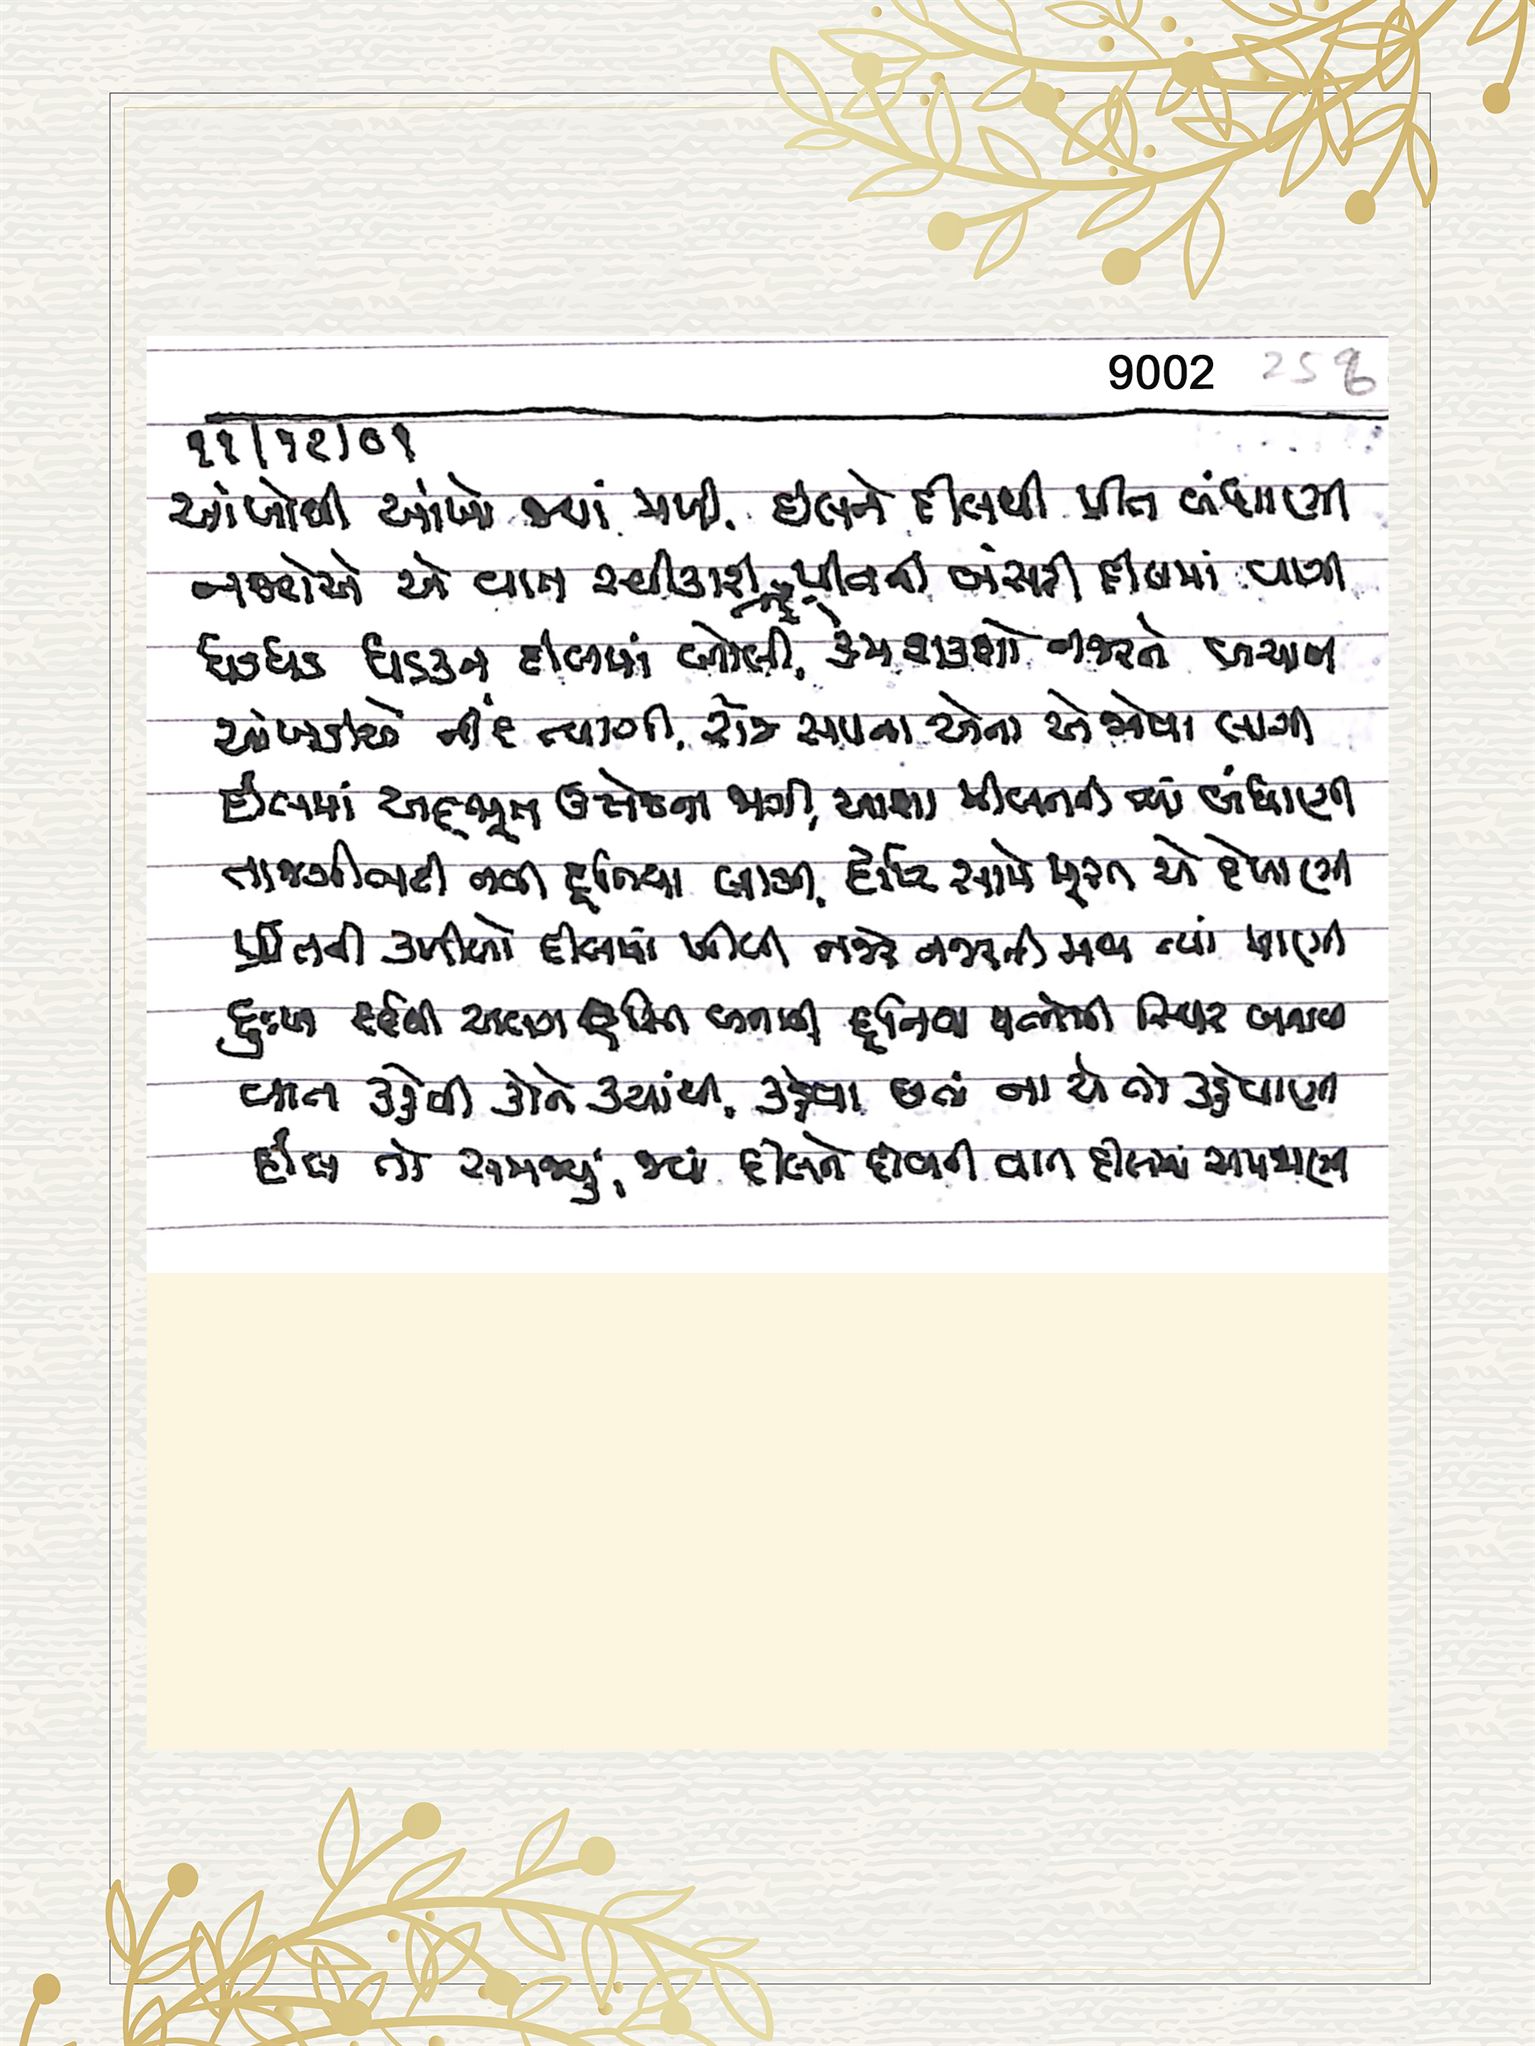 9002 259
૧૧/૧૨/૦૧
આંખોથી આંખો જ્યાં મળી, દીલને દીલથી પ્રીત બંધાણી
નજરોએ એ વાત સ્વીકારી, પ્રીતની બંસરી દીલમાં વાગી
ધડધડ ધડકન દીલમાં બોલી, કેમ શકશો નજરને
આંખડીએ નીંદ ત્યાગી, રોજ સપના એના એ જોવા લાગી
દીલમાં અદ્ભૂત ઉત્તેજના જાગી, આશા મીલનની જ્યાં બંધાણી
તાજગીભરી નવી દૂનિયા લાગી, દૃષ્ટિ સામે મૂરત એ દેખાણી
પ્રીતની કળીઓ દીલમાં ખીલી નજરે નજરની મય ત્યાં માણી
દુઃખ દર્દથી અલગ બનાવી દૂનિયા સ્થિર બનાવી
વાત કહેવી કોને ક્યાંથી, કહેવા છતાં ના એ તો કહેવાણી
દીલ તો સમજ્યું, જ્યાં દીલને દીલની વાત દીલમાં સમજાણી